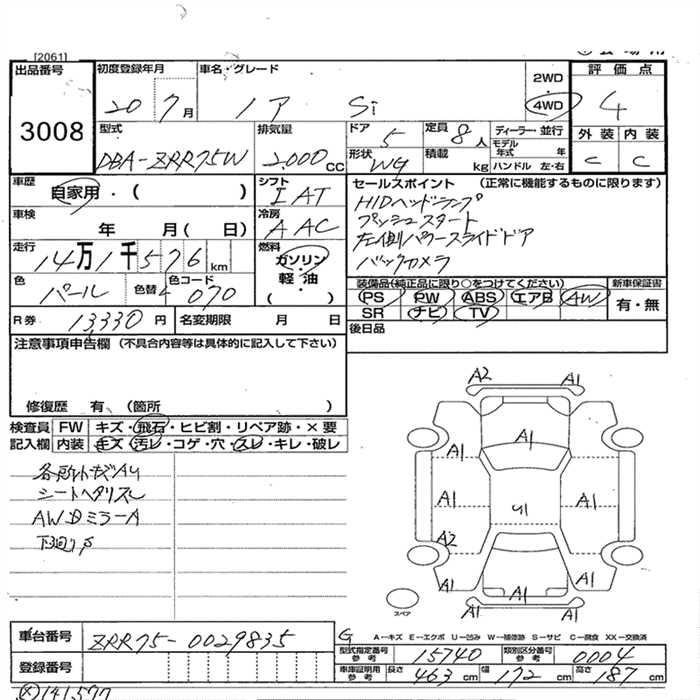 [2061]
出品番号
3008
初度登録年月
20 7月
車名・グレード
ノア Si
2WD
4WD
評価点
4
外装 内装
C C
型式
DBA-ZRR75W
排気量
2,000 CC
ドア
5
形状
WG
定員
8人
積載
kg
ディーラー・並行
モデル年式 年
ハンドル 左・右
車歴
自家用・( )
シフト
IAT
車検
年 月( 日)
冷房
AAC
走行
14万1千576km
燃料
ガソリン・軽油
・( )
色
パール
色替
色コード
070
セールスポイント (正常に機能するものに限ります)
HIDヘッドランプ
プッシュスタート
左側パワースライドドア
バックカメラ
装備品(純正品に限り○をつけてください)
PS PW ABS エアB AW
SR ナビ TV
新車保証書
有・無
後日品
R券 13,330円
名変期限 月 日
注意事項申告欄(不具合内容等は具体的に記入して下さい)
修復歴 有 (箇所 )
検査員記入欄
FW キズ・飛石・ヒビ割・リペア跡・×要
内装 キズ・汚レ・コゲ・穴・スレ・キレ・破レ
シートヘタリスレ
AWDミラーA
A2 A1
A1
A1 A1
A1 U1 A1
A2
A1 A1
A1 A1
スペア
車台番号
ZRR75-0029835
登録番号
G
A→キズ E→エクボ U→凹み W→補修跡 S→サビ C→腐食 XX→交換済
型式指定番号 参考 15740
類別区分番号 参考 0004
車庫証明用 参考 長さ 463 cm 幅 172 cm 高さ 187 cm
141577